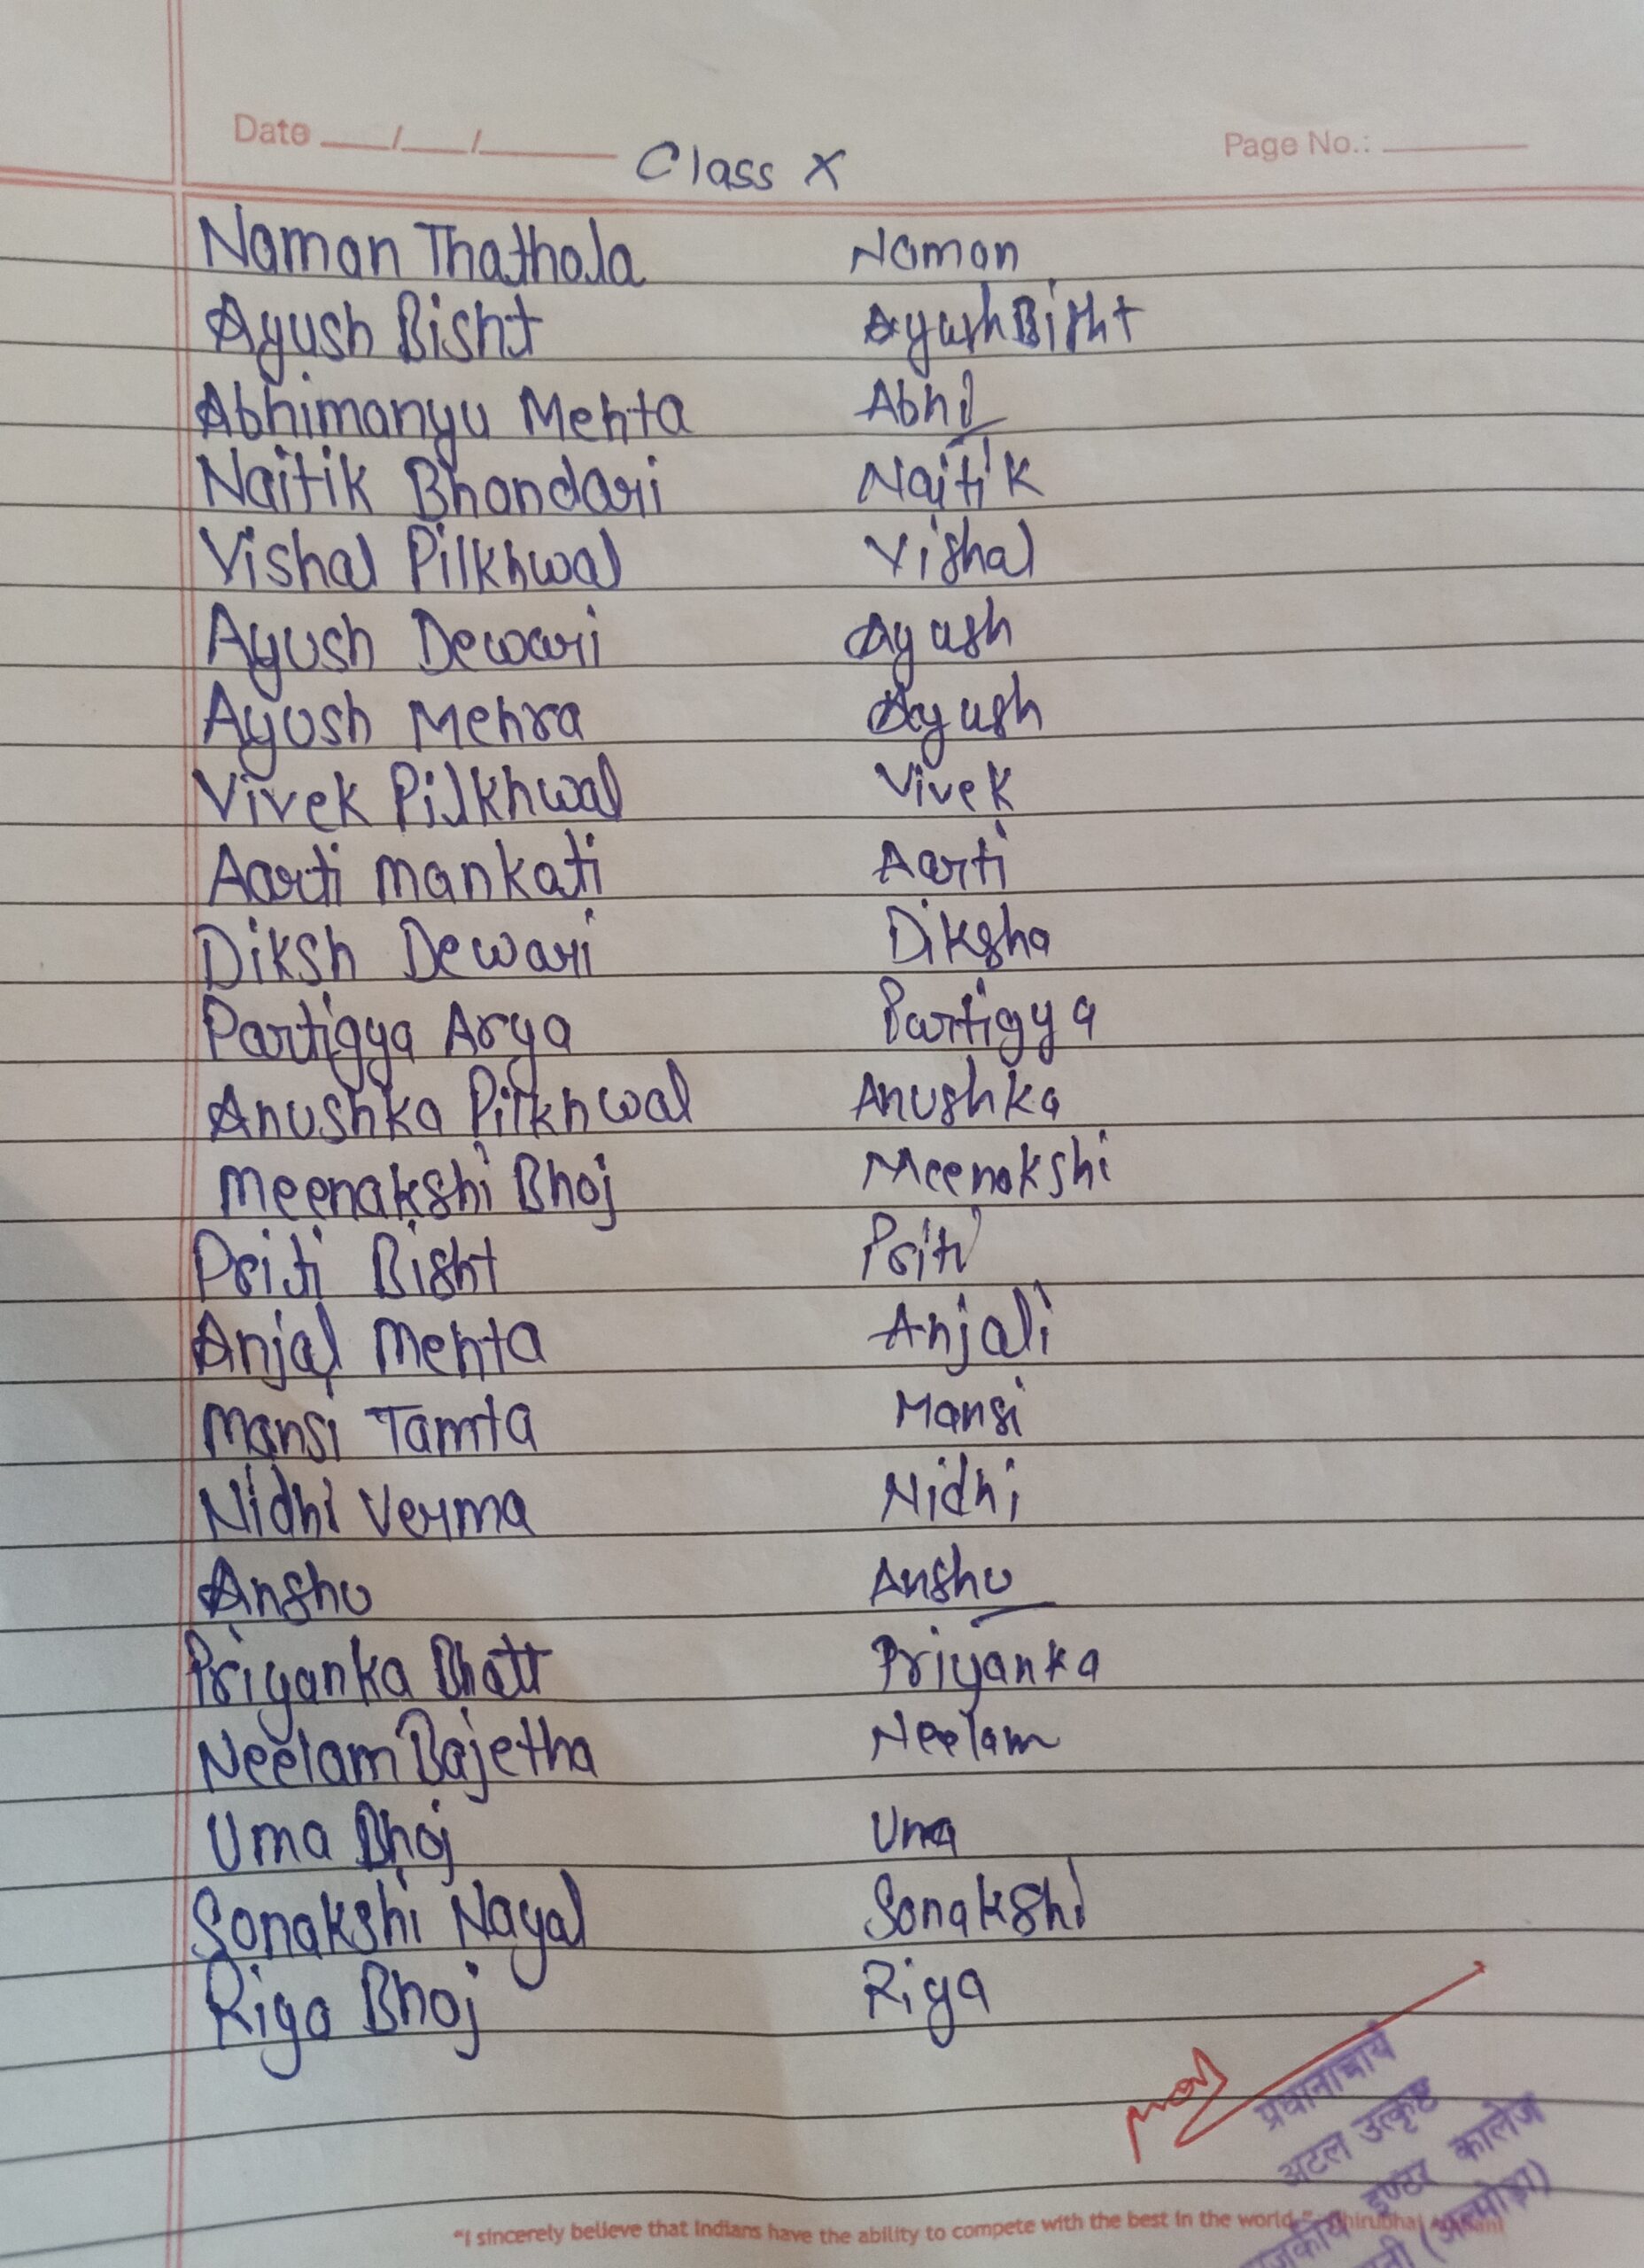 Date ___/___/______ Page No.: ______
Class X
Naman Thathola Naman
Ayush Bisht Ayush Bisht
Abhimanyu Mehta Abhi
Naitik Bhandari Naitik
Vishal Pilkhwal Vishal
Ayush Dewari Ayush
Ayush Mehra Ayush
Vivek Pilkhwal Vivek
Aarti Mankati Aarti
Diksh Dewari Diksha
Partigya Arya Partigya
Anushka Pilkhwal Anushka
Meenakshi Bhoj Meenakshi
Priti Bisht Priti
Anjal Mehta Anjali
Mansi Tamta Mansi
Nidhi Verma Nidhi
Anshu Anshu
Priyanka Bhatt Priyanka
Neelam Bajetha Neelam
Uma Bhoj Uma
Sonakshi Nayal Sonakshi
Riya Bhoj Riya
प्रधानाचार्य
अटल उत्कृष्ट
इण्टर कालेज
(अल्मोड़ा)
"I sincerely believe that Indians have the ability to compete with the best in the world."